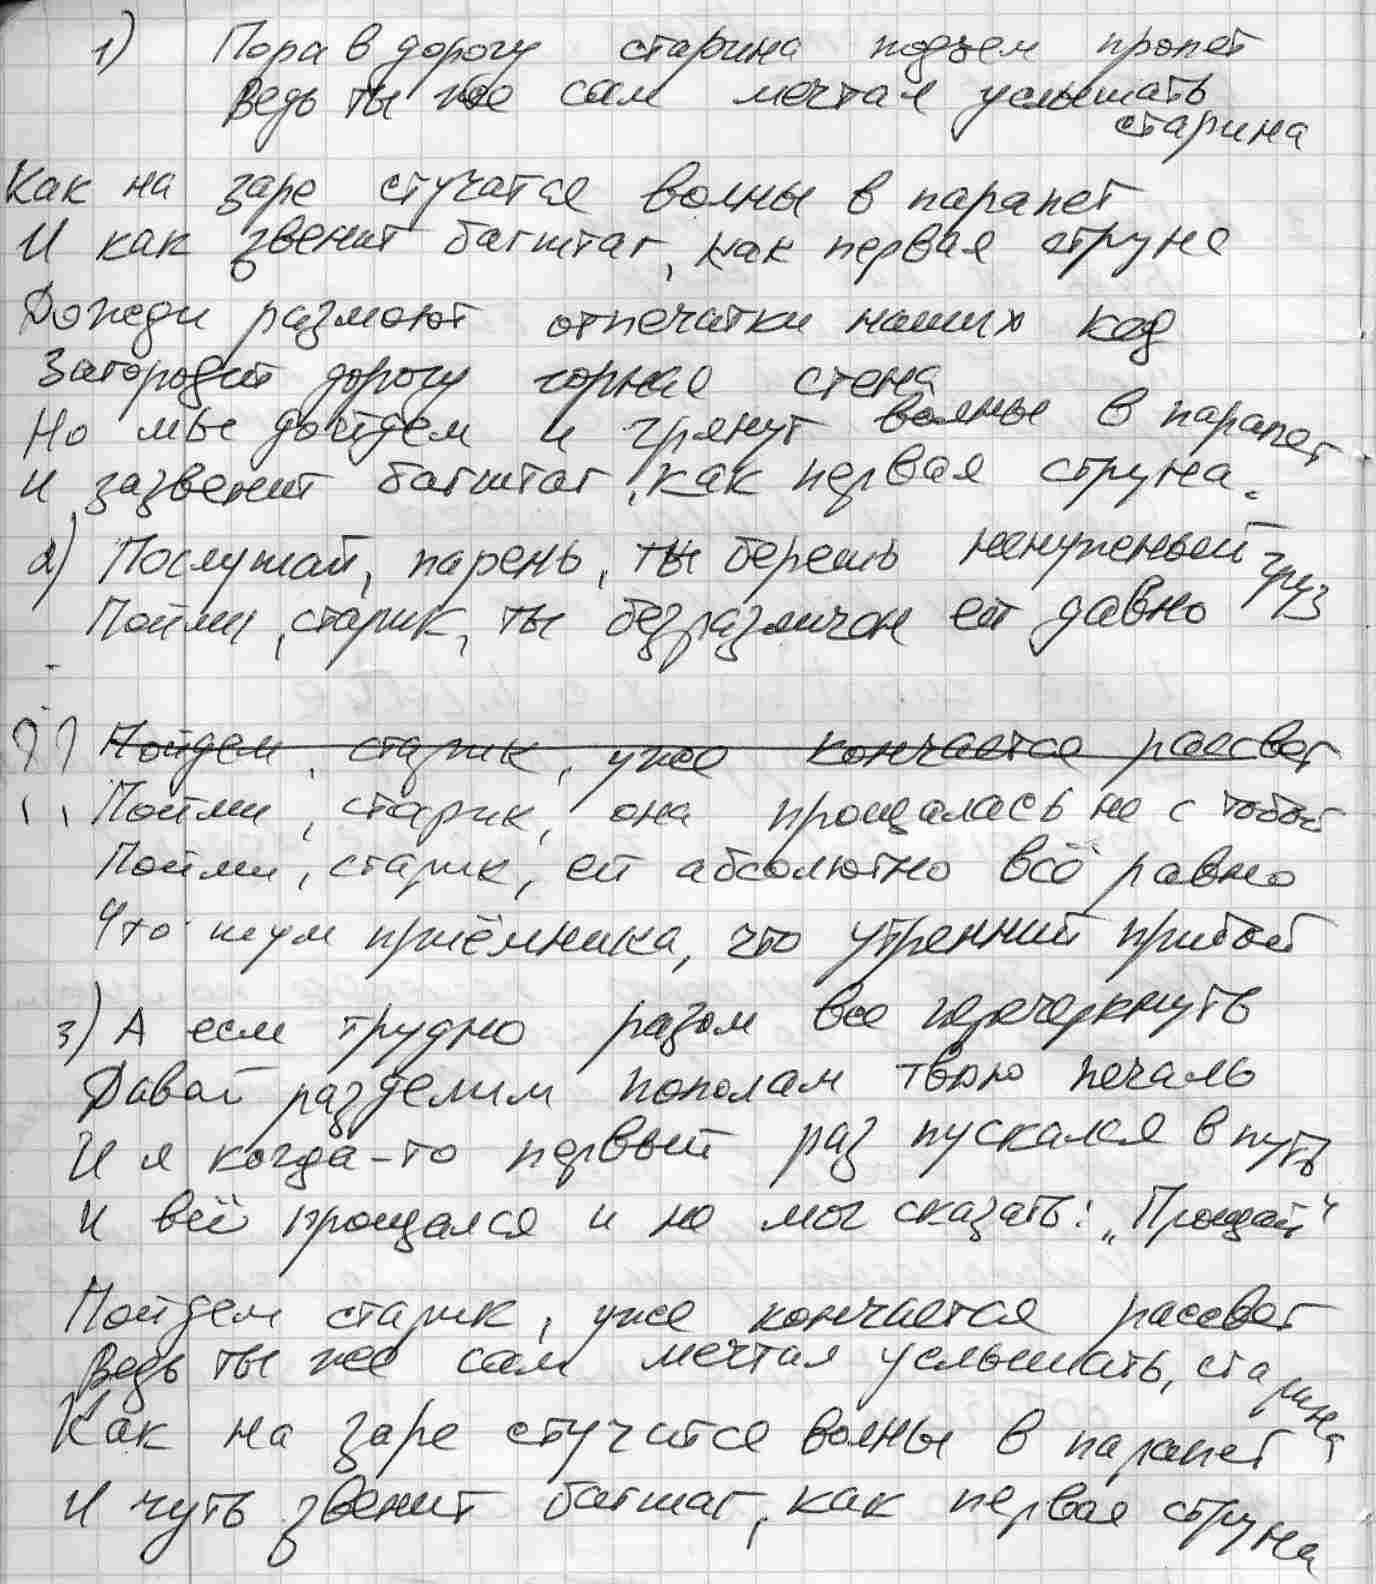 1) Пора в дорогу старина подъем пропет
Ведь ты же сам мечтал услышать
старина
Как на заре стучатся волны в парапет
И как звенит бакштаг, как первая струна
Дожди размоют отпечатки наших кед
Загородит дорогу горная стена
Но мы дойдем и грянут волны в парапет
И зазвенит бакштаг, как первая струна.
2) Послушай, парень, ты берешь ненужный груз
Пойми, старик, ты безразличен ей давно
Пойдем, старик, уже кончается рассвет
Пойми, старик, она прощалась не с тобой
Пойми, старик, ей абсолютно всё равно
Что шум приёмника, что утренний прибой
3) А если трудно разом все перечеркнуть
Давай разделим пополам твою печаль
И я когда-то первый раз пускался в путь
И всё прощался и не мог сказать: „Прощай“
Пойдем старик, уже кончается рассвет
Ведь ты же сам мечтал услышать, старина
Как на заре стучатся волны в парапет
И чуть звенит бакштаг, как первая струна